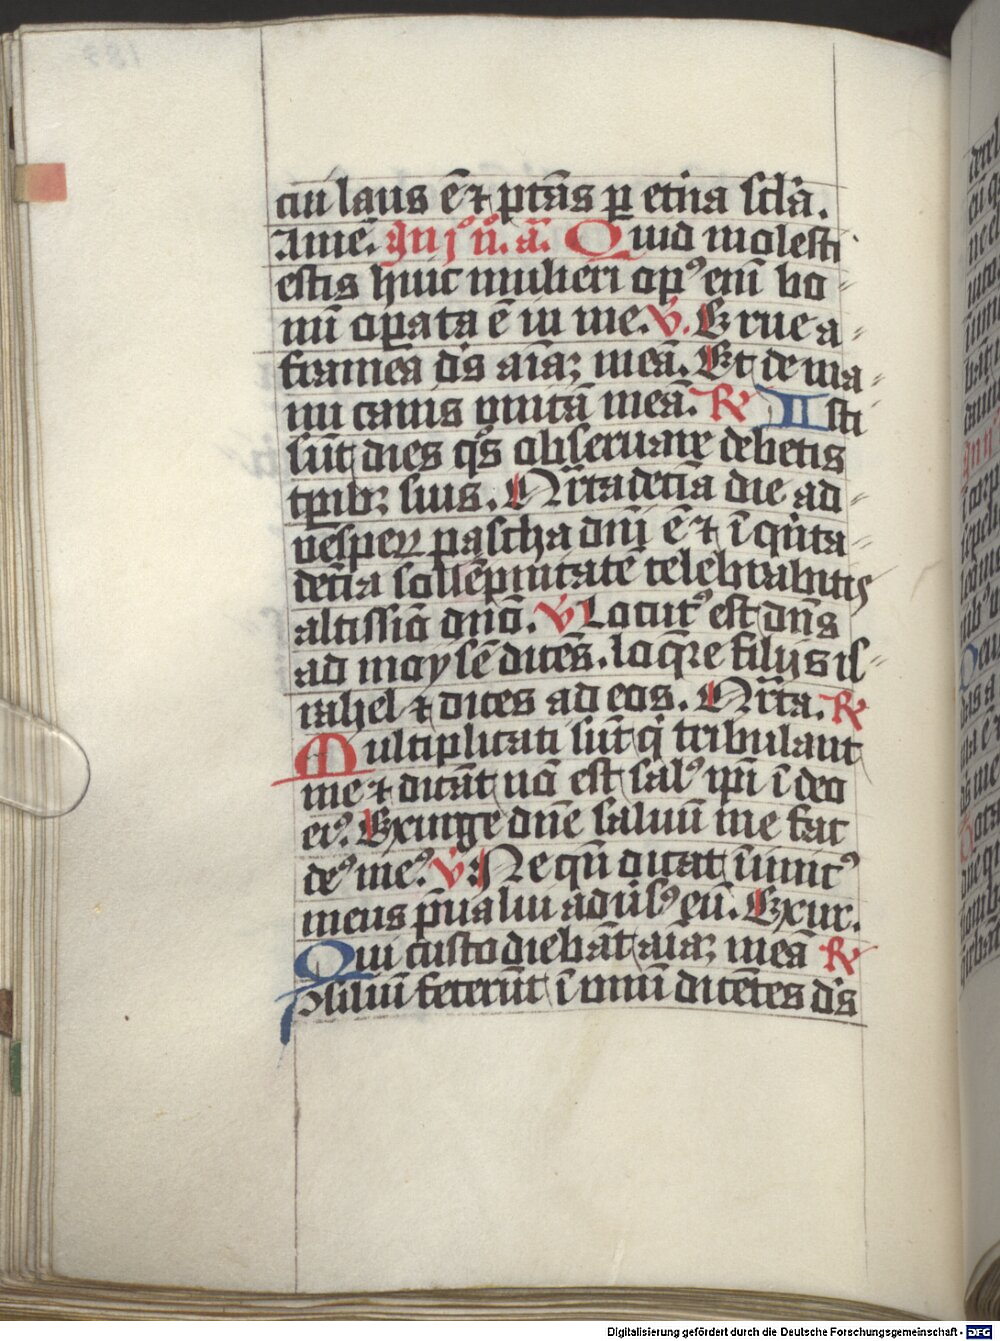 cui laus ē ⁊ ptās ꝑ et̾na sclā.
Amē. In j° n̊. a͛. Quid molesti
estis huic mulieri opꝰ enī bo⸗
nū oꝑata ē in me. V̾. Erue a⸗
framea dˢ aīaꝫ meā. Et de ma⸗
nu canis vnicā meā. R̸ Isti
sūt dies qˢ obseruare debetis
tꝑibꝫ suis. Q̈rtadecīa die ad⸗
vesperꝝ pascha dnī ē ⁊ ī qͥnta⸗
decīa sollēpnitatē celebrabitis
altissīo dnō. V̾ Locutꝰ est dn̄s
ad moysē dicēs. loq̄re filijs is⸗
rahel ⁊ dices ad eos. Q̈rta. R̸
Multiplicati sūt qͥ tribulant
me ⁊ dicāt nō est salꝰ ipī ī deo
eiꝰ. Exurge dn̄e saluū me fac
deꝰ meꝰ. V̾ Ne qn̄ dicat inimicꝰ
meus p̄ualui aduͥsꝰ eū. Exur.
Qui custodiebāt aīaꝫ meā R̸
ↄsiliū fecerūt ī vnū dicētes dˢ
Digitalisierung gefördert durch die Deutsche Forschungsgemeinschaft - DFG